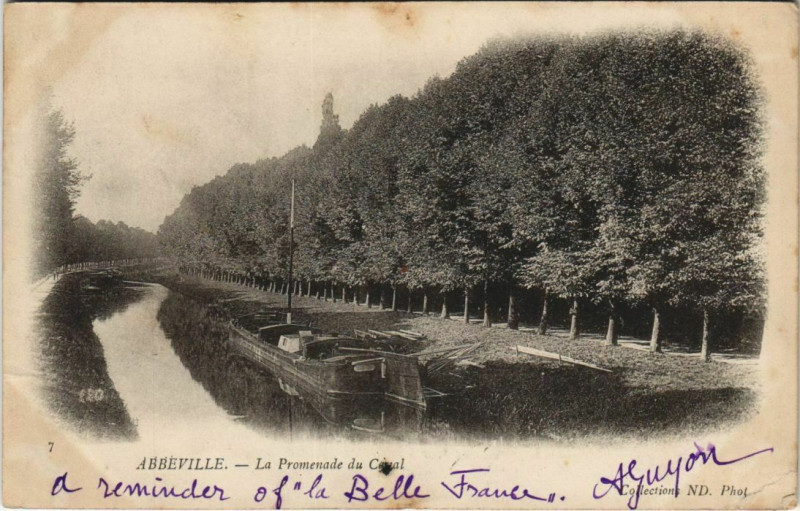 7
ABBEVILLE. — La Promenade du Canal
a reminder of "la Belle France". AGuyon
Collections ND. Phot